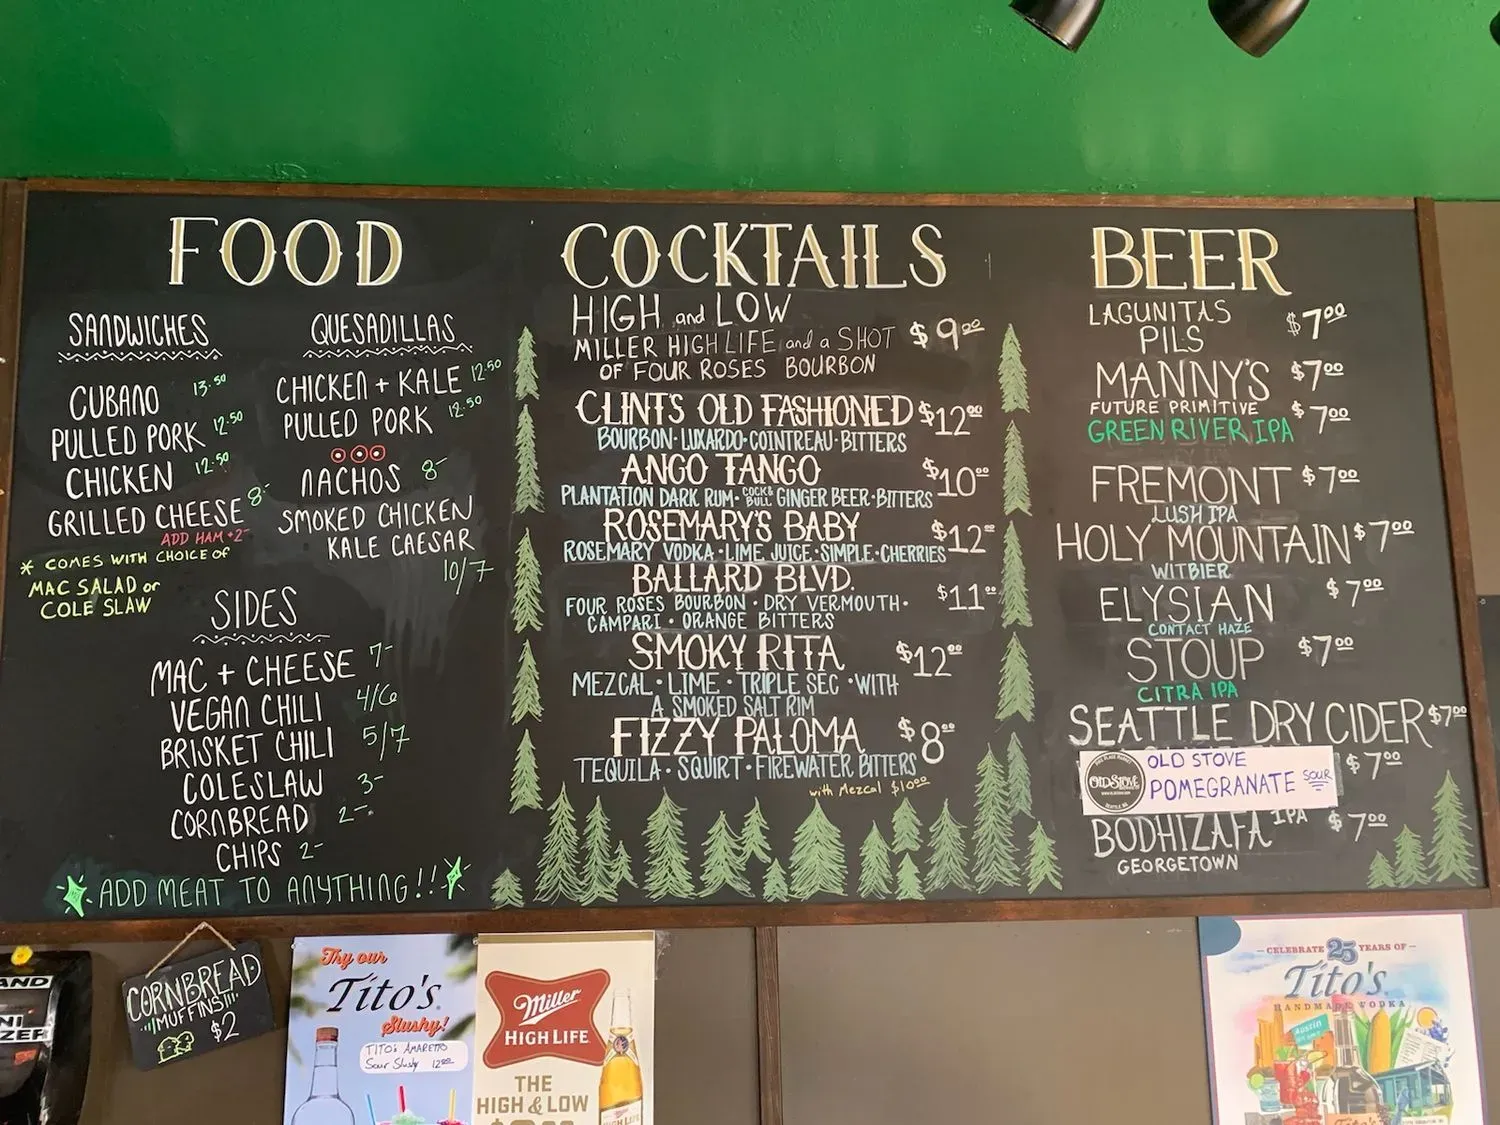 FOOD
SANDWICHES
CUBANO 13.50
PULLED PORK 12.50
CHICKEN 12.50
GRILLED CHEESE 8-
ADD HAM +2-
* COMES WITH CHOICE OF
MAC SALAD or
COLE SLAW
QUESADILLAS
CHICKEN + KALE 12.50
PULLED PORK 12.50
NACHOS 8-
SMOKED CHICKEN
KALE CAESAR
10/7
SIDES
MAC + CHEESE 7-
VEGAN CHILI 4/6
BRISKET CHILI 5/7
COLESLAW 3-
CORNBREAD 2-
CHIPS 2-
ADD MEAT TO ANYTHING!!
COCKTAILS
HIGH and LOW
MILLER HIGH LIFE and a SHOT $9.00
OF FOUR ROSES BOURBON
CLINT'S OLD FASHIONED $12.00
BOURBON · LUXARDO · COINTREAU · BITTERS
ANGO TANGO $10.00
PLANTATION DARK RUM · COCK & BULL GINGER BEER · BITTERS
ROSEMARY'S BABY $12.00
ROSEMARY VODKA · LIME JUICE · SIMPLE · CHERRIES
BALLARD BLVD. $11.00
FOUR ROSES BOURBON · DRY VERMOUTH ·
CAMPARI · ORANGE BITTERS
SMOKY RITA $12.00
MEZCAL · LIME · TRIPLE SEC · WITH
A SMOKED SALT RIM
FIZZY PALOMA $8.00
TEQUILA · SQUIRT · FIREWATER BITTERS
with Mezcal $10.00
BEER
LAGUNITAS $7.00
PILS
MANNY'S $7.00
FUTURE PRIMITIVE $7.00
GREEN RIVER IPA
FREMONT $7.00
LUSH IPA
HOLY MOUNTAIN $7.00
WITBIER
ELYSIAN $7.00
CONTACT HAZE
STOUP $7.00
CITRA IPA
SEATTLE DRY CIDER $7.00
OLD STOVE
OLD STOVE
POMEGRANATE SOUR $7.00
BODHIZAFA IPA $7.00
GEORGETOWN
CORNBREAD
MUFFINS!!!
$2
Try our
Tito's
Slushy!
TITO's AMARETTO
Sour Slushy 12.00
Miller
HIGH LIFE
THE
HIGH & LOW
CELEBRATE 25 YEARS OF
Tito's
HANDMADE VODKA
Austin
Tito's